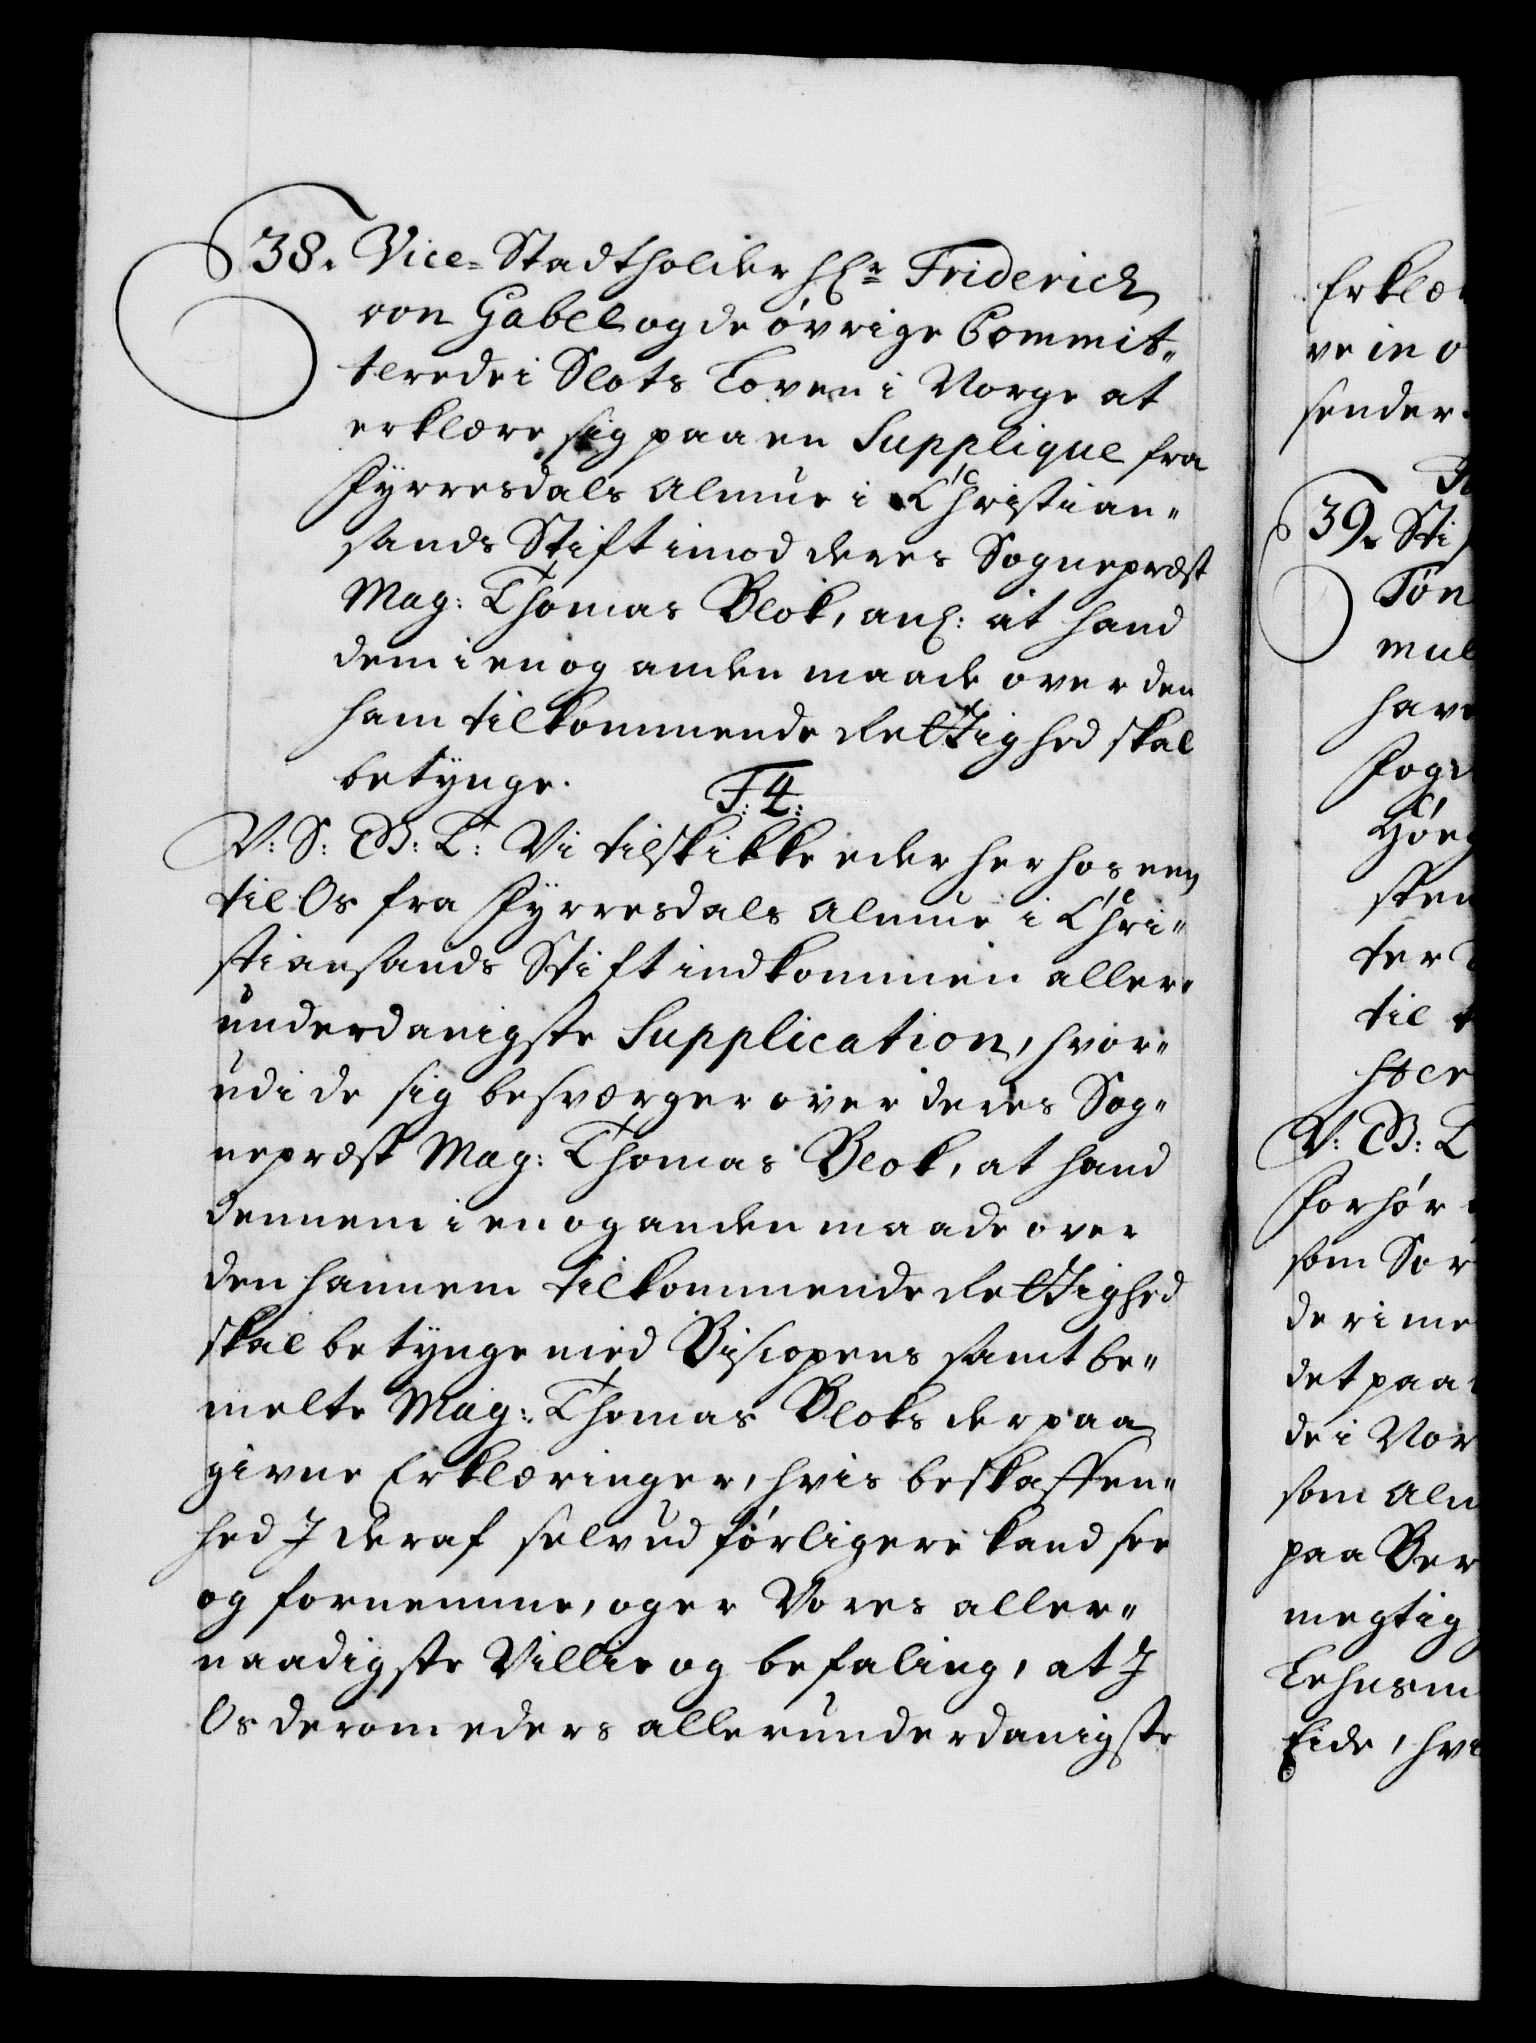 38. Vice-Stadtholder Hr Friderich
von Gabel og de øvrige Commit-
terede i Slots Loven i Norge at
erklære sig paa en Supplique fra
Fyrresdals Almue i Christian-
sands Stift imod deres Sognepræst
Mag: Thomas Blok, anl: at hand
dem i en og anden maade over den
ham tilkommende Rettighed skal
betynge.
F: 4:
V: S: G: T: Vi tilskikke eder her hos een
til Os fra Fyrresdals Almue i Chri-
stiansands Stift indkommen aller-
underdanigste Supplication, hvor-
udi de sig besværger over deres Sog-
nepræst Mag: Thomas Blok, at hand
dennem i en og anden maade over
den hannem tilkommende Rettighed
skal betynge med Biscopens samt be-
melte Mag: Thomas Bloks derpaa
givne Erklæringer, hvis beskaffen-
hed I deraf selv udførligere kand see
og fornemme, og er Vores aller-
naadigste Villie og befaling, at I
Os derom eders allerunderdanigste
Erklæ
ve in o
sender.
39. Sti
Tøn
mul
have
Foge
sten
ter
til
V: G: T
Forhør
som Sor
derime
det paa
de i Nor
som Alm
paa Ber
megtig
Lehnsm
Eide, hvi